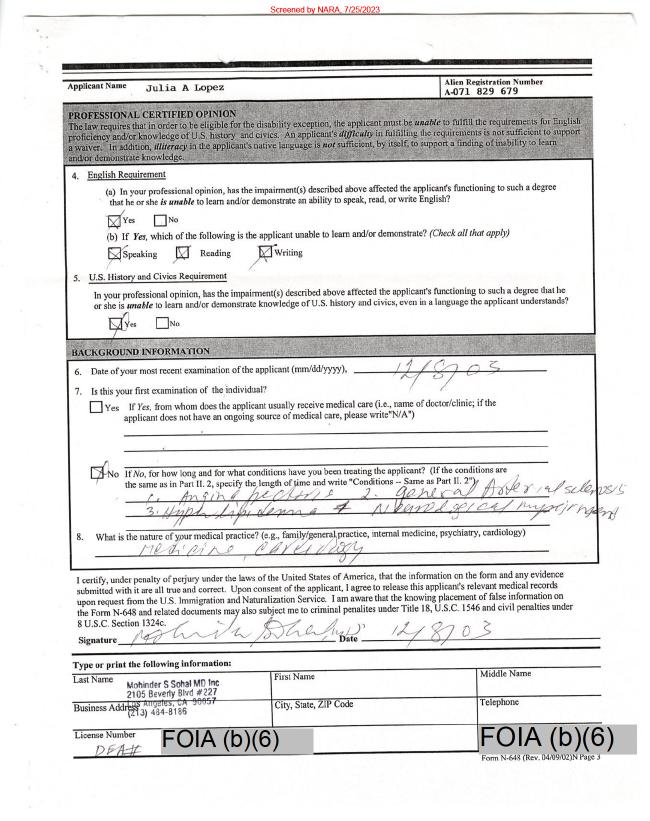 Screened by NARA, 7/25/2023
Applicant Name Julia A Lopez
Alien Registration Number
A-071 829 679
PROFESSIONAL CERTIFIED OPINION
The law requires that in order to be eligible for the disability exception, the applicant must be unable to fulfill the requirements for English
proficiency and/or knowledge of U.S. history and civics. An applicant's difficulty in fulfilling the requirements is not sufficient to support
a waiver. In addition, illiteracy in the applicant's native language is not sufficient, by itself, to support a finding of inability to learn
and/or demonstrate knowledge.
4. English Requirement
(a) In your professional opinion, has the impairment(s) described above affected the applicant's functioning to such a degree
that he or she is unable to learn and/or demonstrate an ability to speak, read, or write English?
Yes No
(b) If Yes, which of the following is the applicant unable to learn and/or demonstrate? (Check all that apply)
Speaking Reading Writing
5. U.S. History and Civics Requirement
In your professional opinion, has the impairment(s) described above affected the applicant's functioning to such a degree that he
or she is unable to learn and/or demonstrate knowledge of U.S. history and civics, even in a language the applicant understands?
Yes No
BACKGROUND INFORMATION
6. Date of your most recent examination of the applicant (mm/dd/yyyy), 12/8/03
7. Is this your first examination of the individual?
Yes If Yes, from whom does the applicant usually receive medical care (i.e., name of doctor/clinic; if the
applicant does not have an ongoing source of medical care, please write "N/A")
No If No, for how long and for what conditions have you been treating the applicant? (If the conditions are
the same as in Part II. 2, specify the length of time and write "Conditions -- Same as Part II. 2")
1. Angina pectoris 2. general
3. Neurological
8. What is the nature of your medical practice? (e.g., family/general practice, internal medicine, psychiatry, cardiology)
Medicine, Cardiology
I certify, under penalty of perjury under the laws of the United States of America, that the information on the form and any evidence
submitted with it are all true and correct. Upon consent of the applicant, I agree to release this applicant's relevant medical records
upon request from the U.S. Immigration and Naturalization Service. I am aware that the knowing placement of false information on
the Form N-648 and related documents may also subject me to criminal penalties under Title 18, U.S.C. 1546 and civil penalties under
8 U.S.C. Section 1324c.
Signature Date 12/8/03
Type or print the following information:
Last Name First Name Middle Name
Mohinder S Sohal MD Inc
2105 Beverly Blvd #227
Los Angeles, CA 90057
(213) 484-8186
Business Address City, State, ZIP Code Telephone
License Number
DEA#
FOIA (b)(6) FOIA (b)(6)
Form N-648 (Rev. 04/09/02)N Page 3